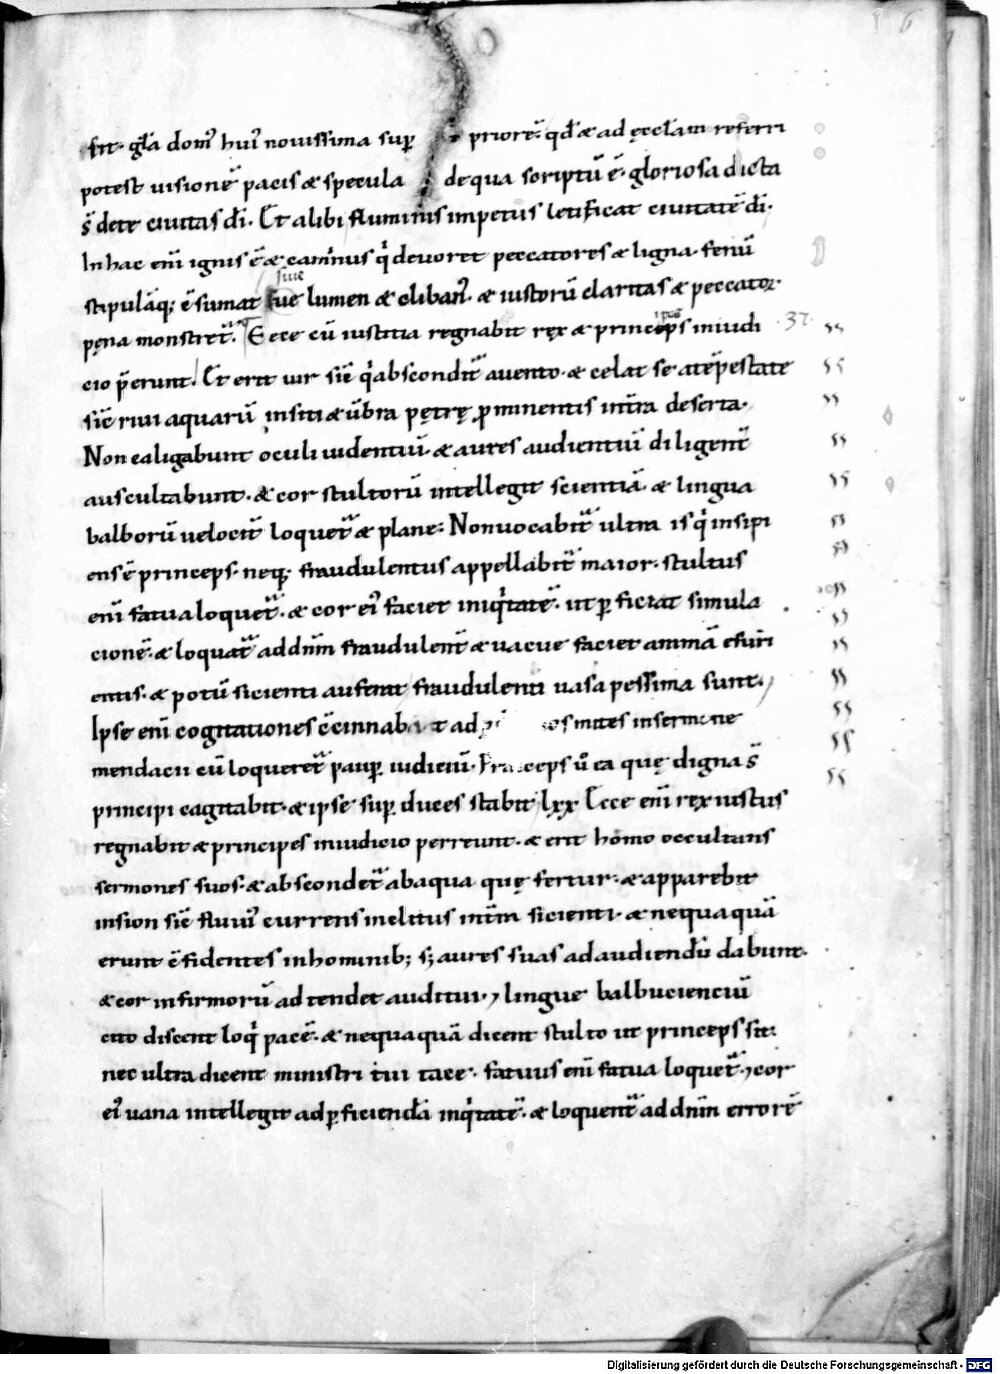 6
fit· gl̄a dom᷒ hui᷒ novissima sup̱ priorē· qd̄ & ad ęccl̄am referri
potest visionē pacis & specula de qua scriptū ē· gloriosa dicta
s̄ de te civitas dī· Et alibi fluminis impetus letificat civitatē dī·
In hac enī ignis ē & caminus q̍ devoret peccatores & ligna· fenū
sive
stipulāq; c̄sumat sue lumen & cliban᷒· & iustorū claritas & peccator
pęna monstret᷑· Ecce cū iustitia regnabit rex & princeps in iudi 32
cio p̄erunt· Et erit vir sic̄ q̍ abscondit᷑ a vento· & celat se a tēpestate
sic̄ rivi aquarū in siti & ūbra pętrę p̱minentis in tr̄a deserta·
Non caligabunt oculi videntiū· & aures audientiū diligent᷑
auscultabunt· & cor stultorū intellegit scientiā· & lingua
balborū velocit᷑ loquet᷑ & plane· Non vocabit᷑ ultra is q̍ insipi
ens ē princeps· neq; fraudulentus appellabit᷑ maior· stultus
enī fatua loquet᷑· & cor ei᷒ faciet iniq̍tatē· ut p̱ficiat simula
cionē· & loquat᷑ ad dn̄m fraudulent᷑ & vacue faciet animā esuri
entis· & potū sicienti auferat fraudulenti vasa pessima sunt·
Ipse enī cogitationes c̄cinnab t ad mites in sermone
mendacii cū loqueret᷑ paup̱ iudiciū· Princeps v̊ ea quę digna s̄
principi cagitabit· & ipse sup̱ duces stabit lxx Ecce enī rex iustus
regnabit & principes in iudicio perreunt· & erit homo occultans
sermones suos· & abscondet᷑ ab aqua quę fertur· & apparebit
in sion sic̄ fluvi᷒ currens inclitus in tr̄a sicienti· & nequaquā
erunt c̄fidentes in hominib; s; aures suas ad audiendū dabunt·
& cor infirmorū ad tendet auditui· ⁊ lingue balbucienciū
cito discent loq̍ pacē· & nequaquā dicent stulto ut princeps sit·
nec ultra dicent ministri tui tace· fatuus enī fatua loquet᷑· ⁊ cor
ei᷒ vana intellegit ad p̱ficiendā inq̍tatē· & loquent᷑ ad dn̄m errorē
Digitalisierung gefördert durch die Deutsche Forschungsgemeinschaft - DFG